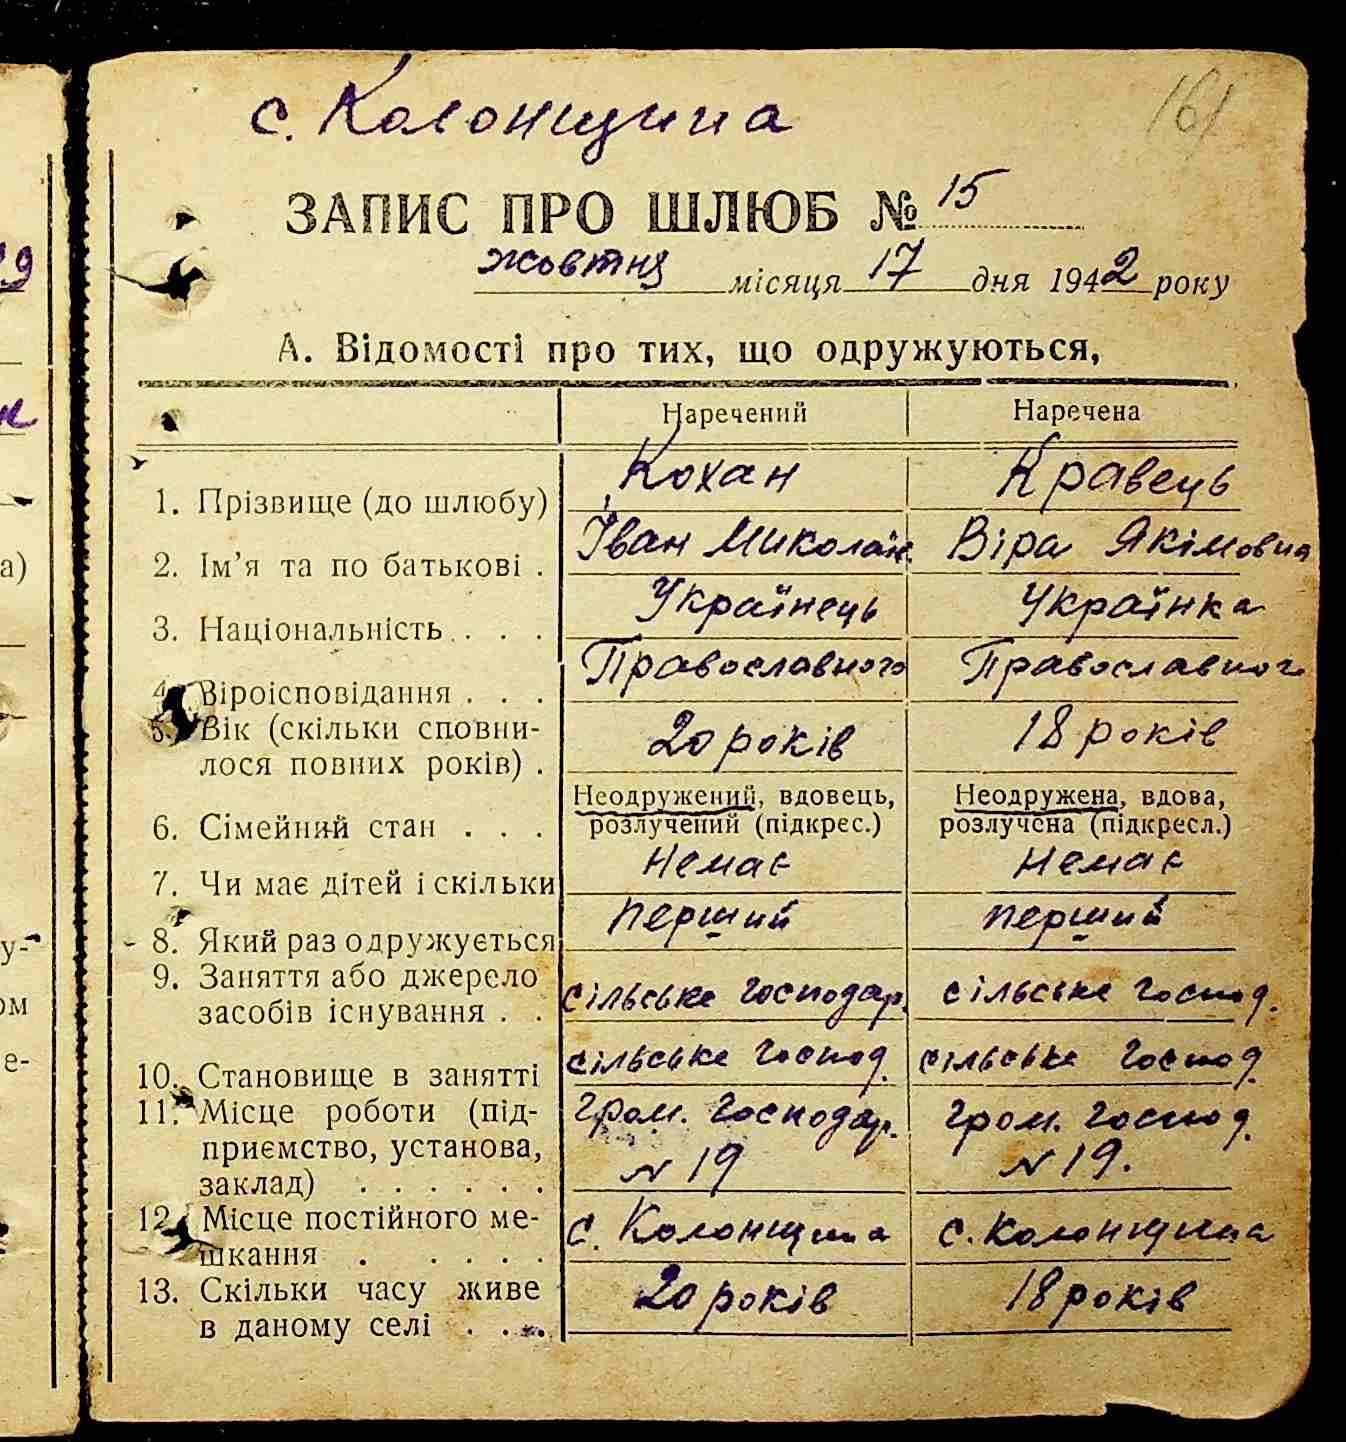 с. Колонщина
161
ЗАПИС ПРО ШЛЮБ № 15
жовтня місяця 17 дня 1942 року
А. Відомості про тих, що одружуються,
Наречений Наречена
1. Прізвище (до шлюбу) Кохан Кравець
2. Ім'я та по батькові . Іван Миколаїв. Віра Якімовна
3. Національність . . . Українець Українка
4. Віроісповідання . . . Православного Православног
5. Вік (скільки сповни-
лося повних років) . 20 років 18 років
6. Сімейний стан . . . Неодружений, вдовець, розлучений (підкрес.) Неодружена, вдова, розлучена (підкресл.)
7. Чи має дітей і скільки Немає Немає
8. Який раз одружується перший перший
9. Заняття або джерело
засобів існування . . сільське господар. сільське господ.
10. Становище в занятті сільське господ. сільське господ.
11. Місце роботи (під- гром. господар. гром. господ.
приємство, установа, N 19 N 19.
заклад) . . . . . .
12. Місце постійного ме-
шкання . . . . . с. Колонщина с. Колонщина
13. Скільки часу живе
в даному селі . . . . 20 років 18 років
29
а)
у-
ом
е-